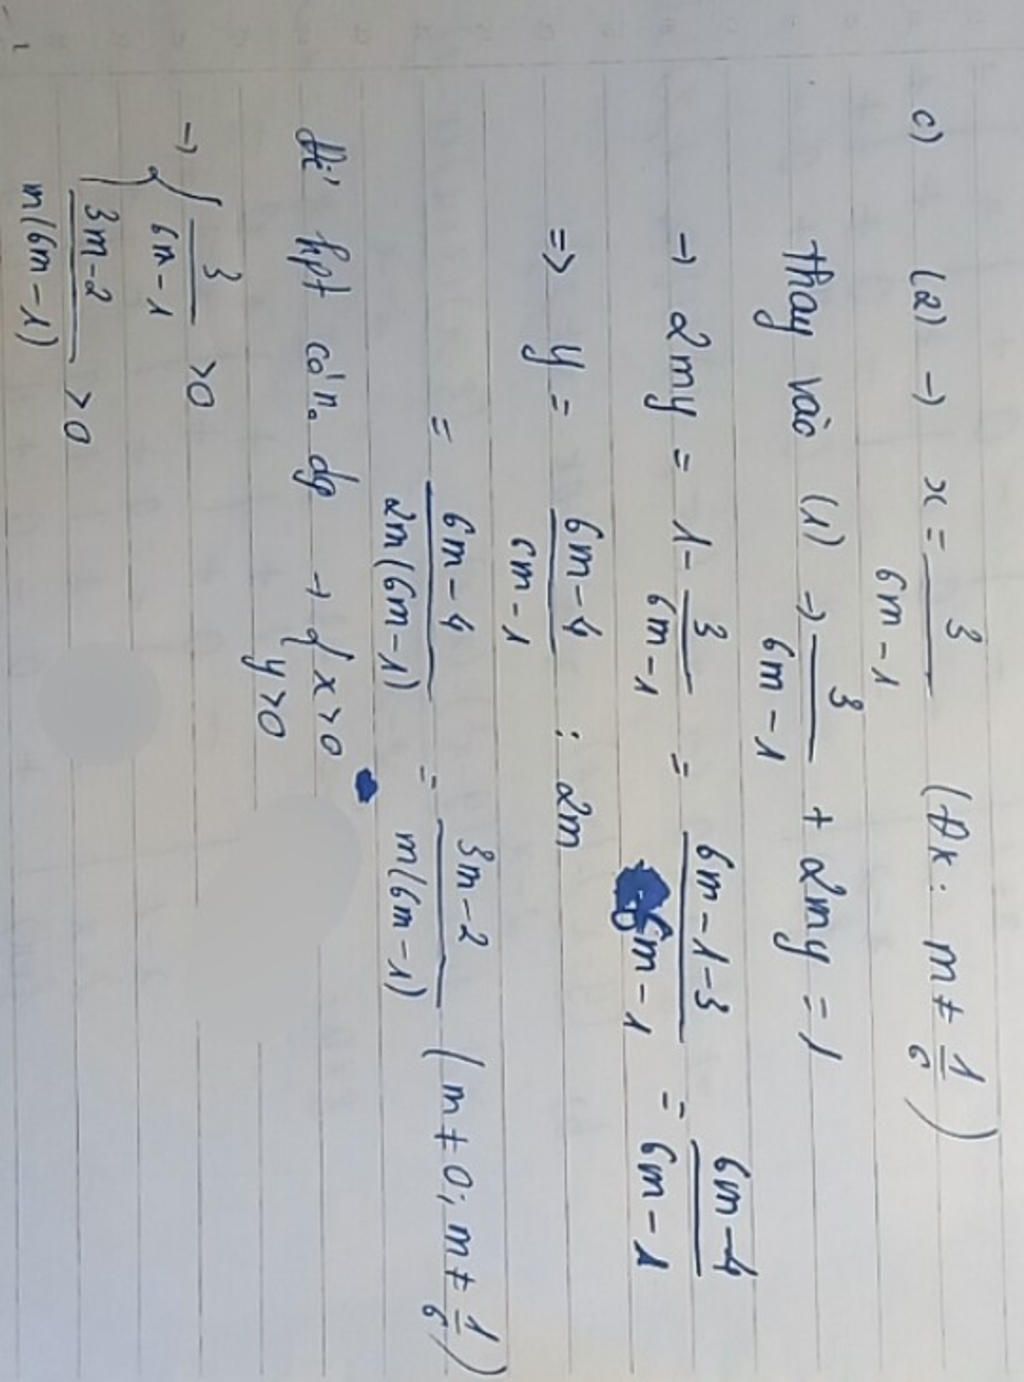 c) (2) → x = 3/(6m-1) (Đk: m ≠ 1/6)
Thay vào (1) → 3/(6m-1) + 2my = 1
→ 2my = 1 - 3/(6m-1) = (6m-1-3)/(6m-1) = (6m-4)/(6m-1)
=> y = (6m-4)/(6m-1) : 2m
= (6m-4)/(2m(6m-1)) = (3m-2)/(m(6m-1)) (m ≠ 0; m ≠ 1/6)
Để hpt có n. dg → { x>0
y>0
→ { 3/(6m-1) >0
(3m-2)/(m(6m-1)) >0